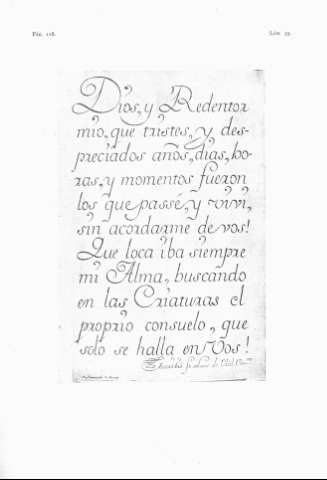 Pág. 118.
Lám. 55
Dios, y Redentor
mio, que tristes, y des-
preciados años, dias, ho-
ras, y momentos fueron
los que passé, y viví,
sin acordarme de vos!
Que loca iba siempre
mi Alma, buscando
en las Criaturas el
proprio consuelo, que
solo se halla en Vos!